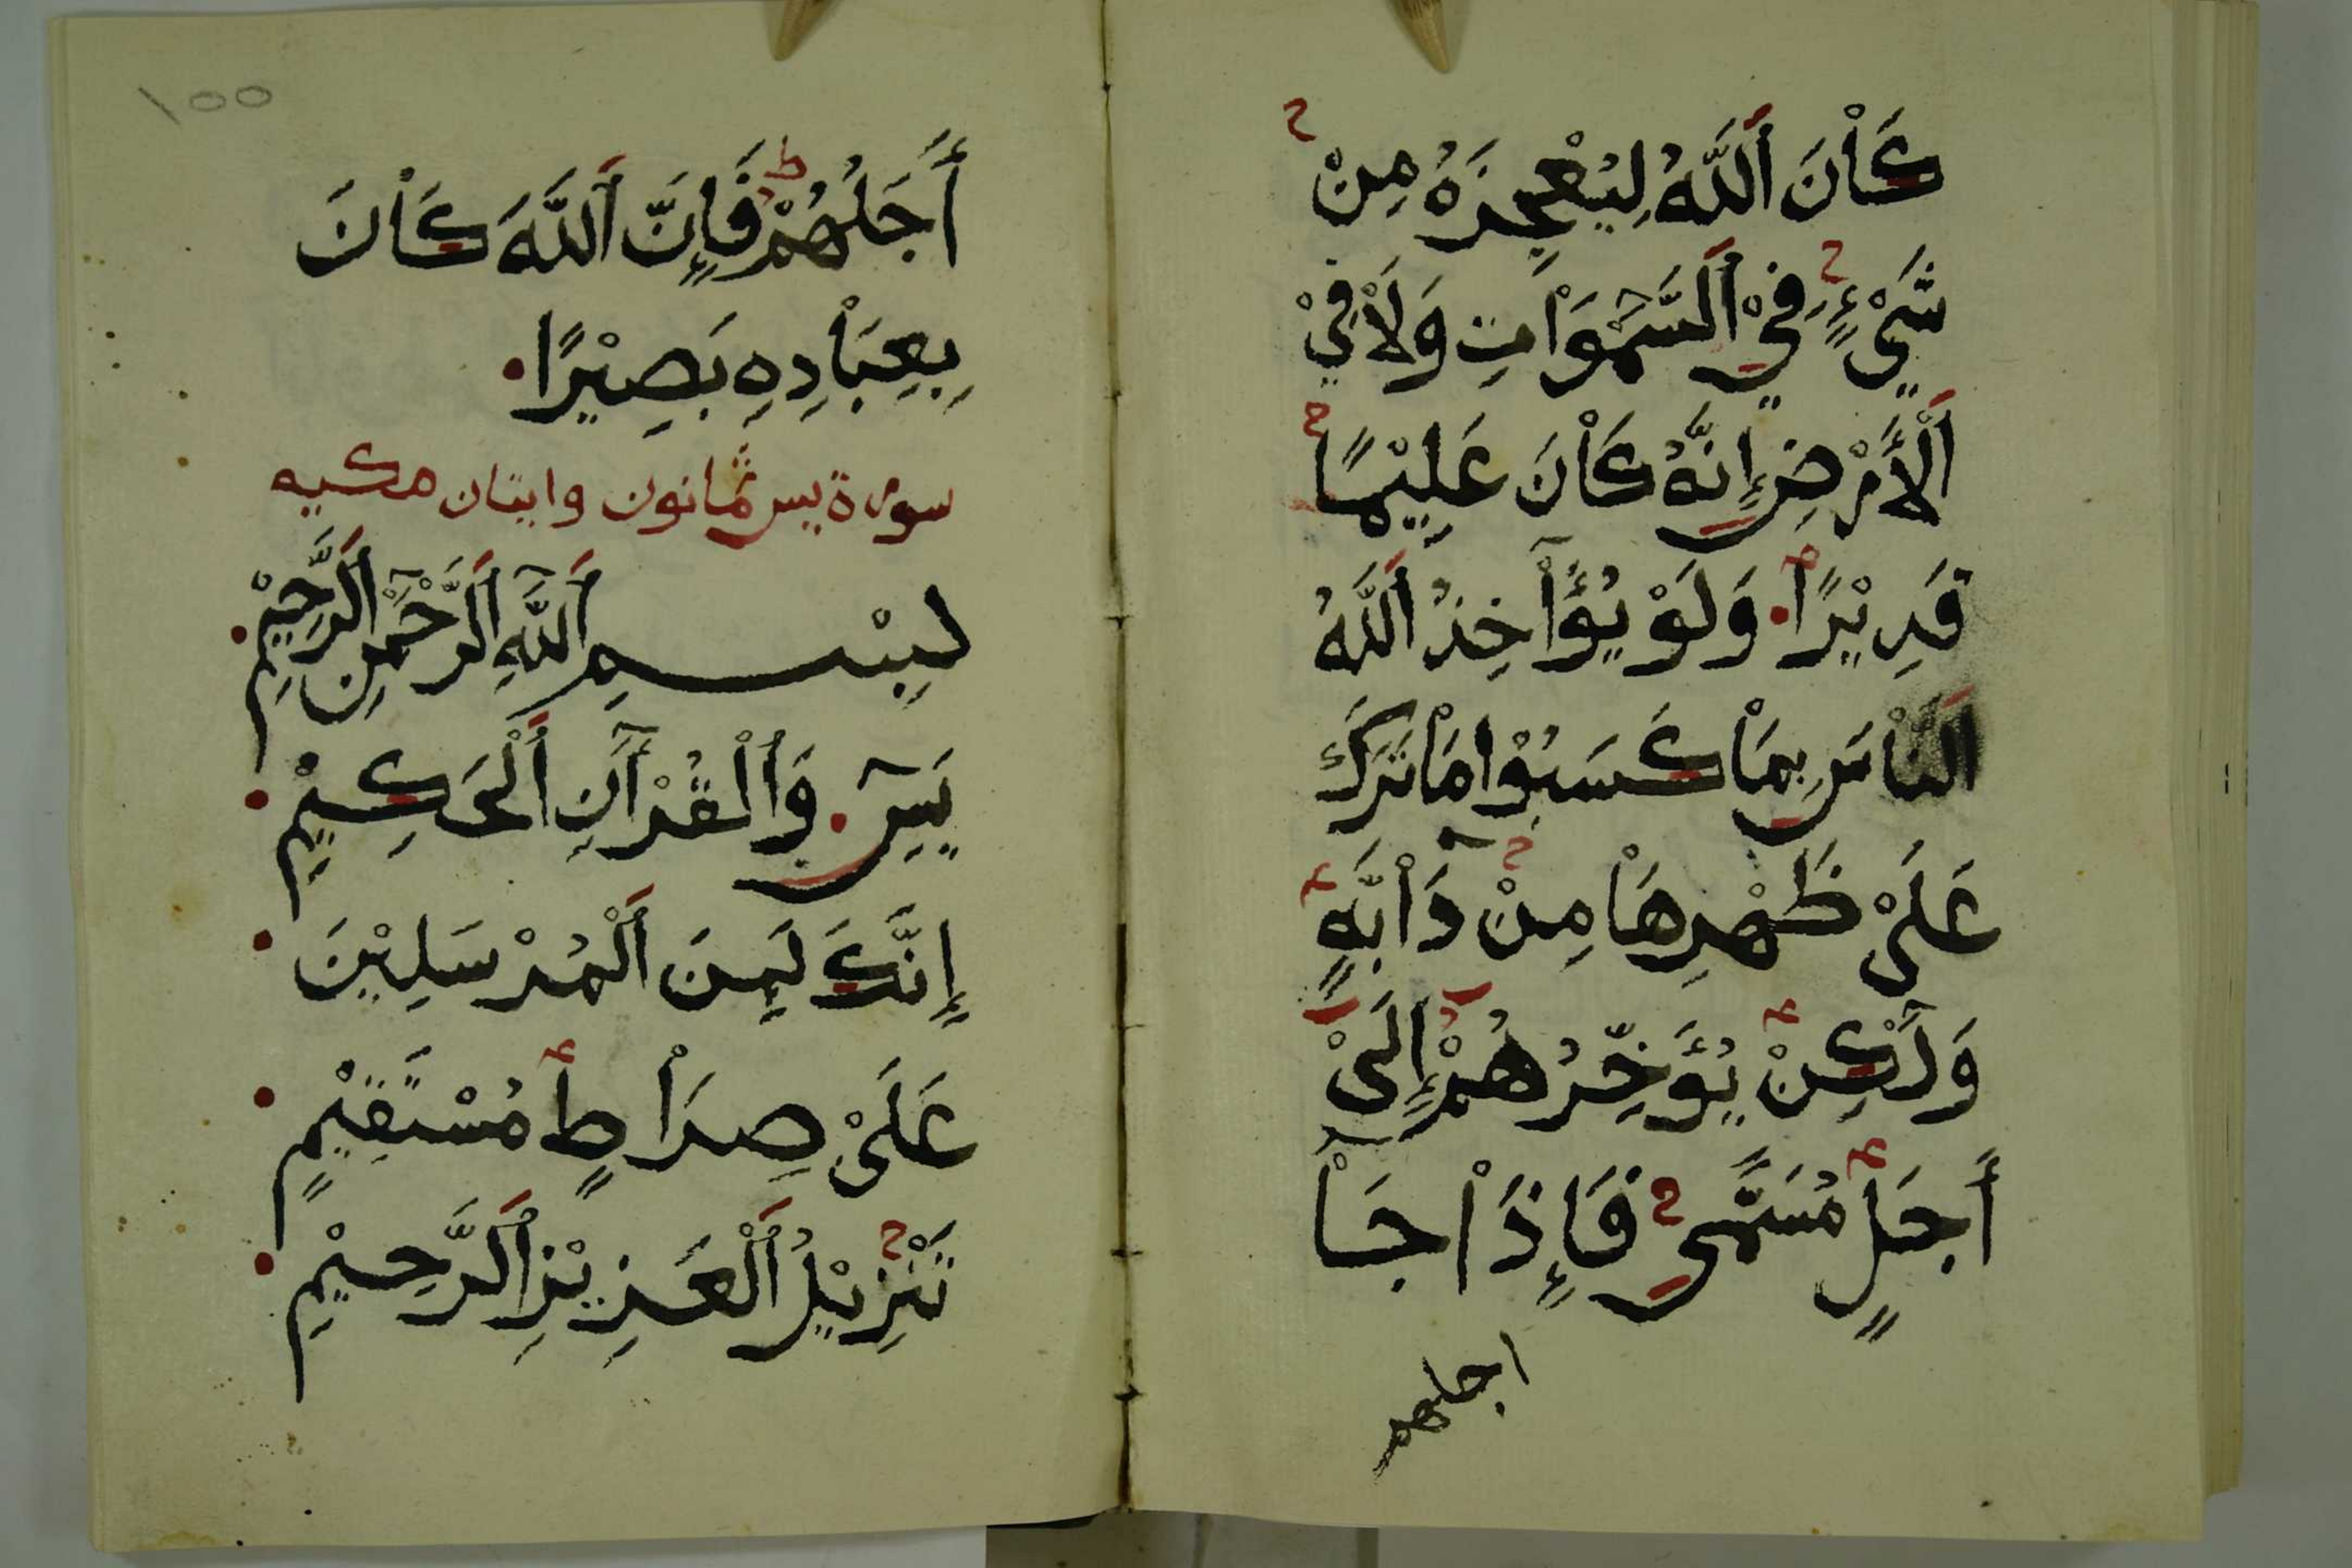 كَاْنَ اَللَّهُ لِيُعْجِزَهُ مِنْ
شَيْءٍ فِيْ اَلسَّمٰوَاْتِ وَلَاْ فِيْ
اَلْأَرْضِ إِنَّهُ كَاْنَ عَلِيْمًا
قَدِيْرًا وَلَوْ يُؤَاْخِذُ اَللَّهُ
اَلنَّاْسَ بِمَاْ كَسَبُوْا مَاْ تَرَكَ
عَلَىْ ظَهْرِهَاْ مِنْ دَاْبَّةٍ
وَلَٰكِنْ يُؤَخِّرُهُمْ إِلَىْ
أَجَلٍ مُسَمًّى فَإِذَاْ جَاْ
اجلهم
١٥٥
أَجَلُهُمْ فَإِنَّ اَللَّهَ كَاْنَ
بِعِبَاْدِهِ بَصِيْرًا
سورة يس ثمانون وايتان مكيه
بِسْمِ اَللَّهِ اَلرَّحْمٰنِ اَلرَّحِيْمِ
يَسٓ وَاَلْقُرْآنِ اَلْحَكِيْمِ
إِنَّكَ لَمِنَ اَلْمُرْسَلِيْنَ
عَلَىْ صِرَاْطٍ مُسْتَقِيْمٍ
تَنْزِيْلُ اَلْعَزِيْزِ اَلرَّحِيْمِ